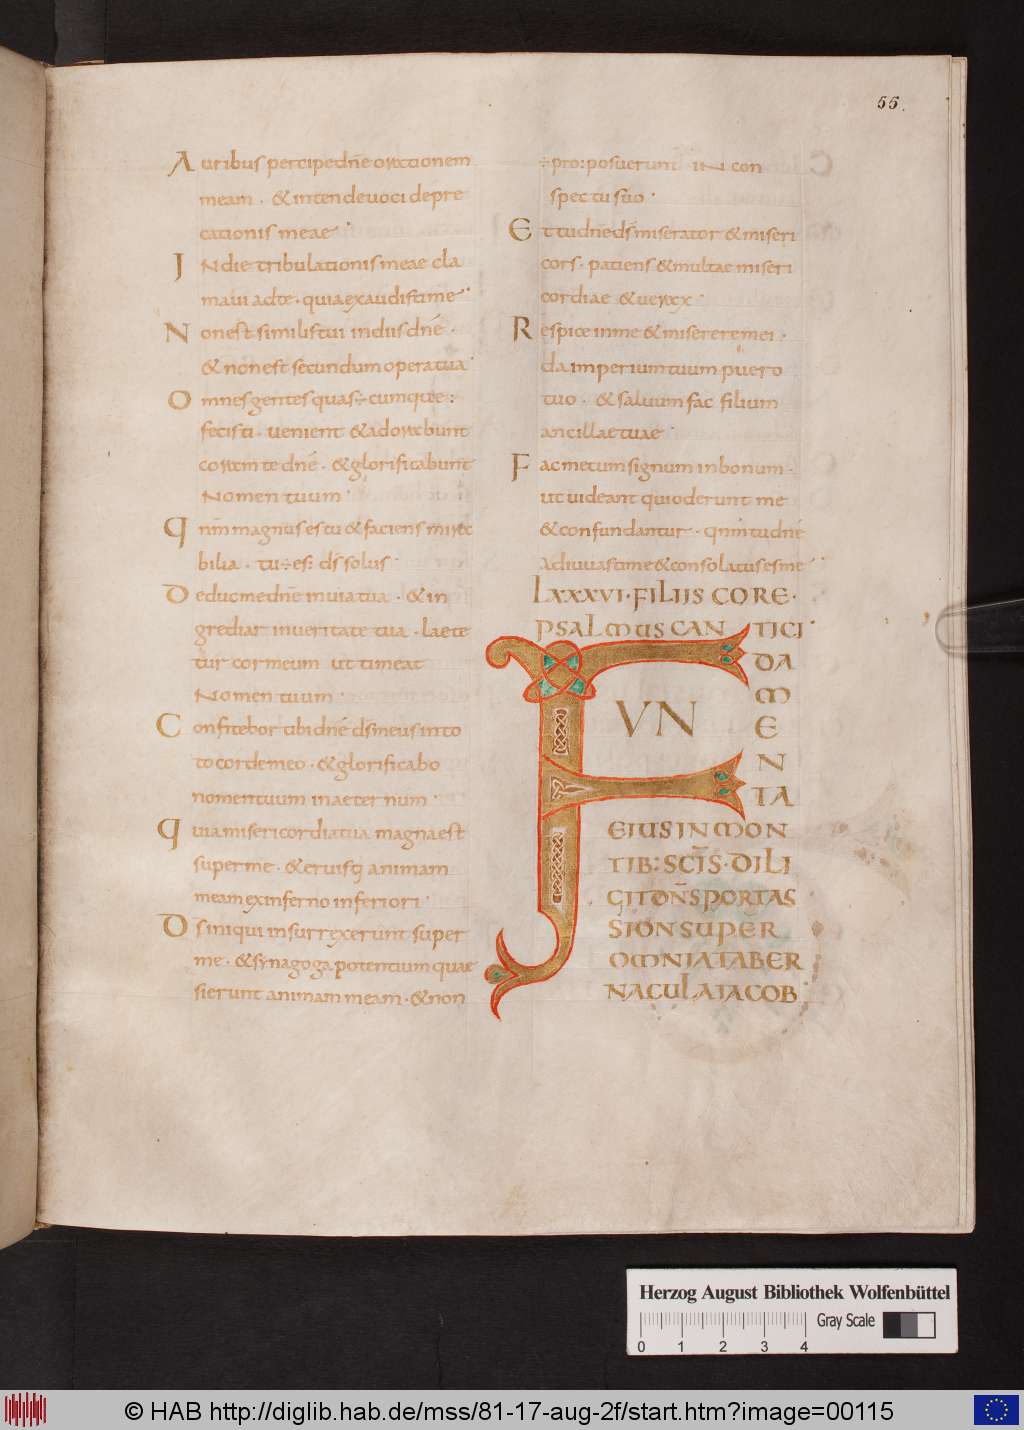 55.
Auribus percipe dn̄e orationem
meam · & intende uoci depre
cationis meae ·
IN die tribulationis meae cla
maui ad te · quia exaudisti me ·
Non est similis tui in diis dn̄e ·
& non est secundum opera tua ·
Omnes gentes quas ÷ cumque :
fecisti · uenient & adorabunt
coram te dn̄e · & glorificabunt
Nomen tuum ·
Qnm̄ magnus es tu & faciens mira
bilia · tu ÷ es: ds̄ solus ·
Deduc me dn̄e in uia tua · & in
grediar in ueritate tua · laete
tur cor meum ut timeat
Nomen tuum ·
Confitebor tibi dn̄e ds̄ meus in to
to corde meo · & glorificabo
nomen tuum in aeternum ·
Quia misericordia tua magna est
super me · & eruisti animam
meam ex inferno inferiori ·
Ds̄ iniqui insurrexerunt super
me · & synagoga potentium quae
sierunt animam meam · & non
÷ pro: posuerunt IN con
spectu suo ·
Et tu dn̄e ds̄ miserator & miseri
cors · patiens & multae miseri
cordiae & uerax ·
Respice in me & miserere mei ·
da imperium tuum puero
tuo · & saluum fac filium
ancillae tuae ·
Fac mecum signum in bonum ·
ut uideant qui oderunt me
& confundantur · qnm̄ tu dn̄e
adiuuasti me & consolatus es me
LXXXVI · FILIIS CORE ·
PSALMUS CANTICI
FUN
DA
M
E
N
TA
EIUS IN MON
TIB: SCĪS · DILI
GIT DN̄S PORTAS
SION SUPER
OMNIA TABER
NACULA IACOB
Herzog August Bibliothek Wolfenbüttel
Gray Scale
0 1 2 3 4
© HAB http://diglib.hab.de/mss/81-17-aug-2f/start.htm?image=00115